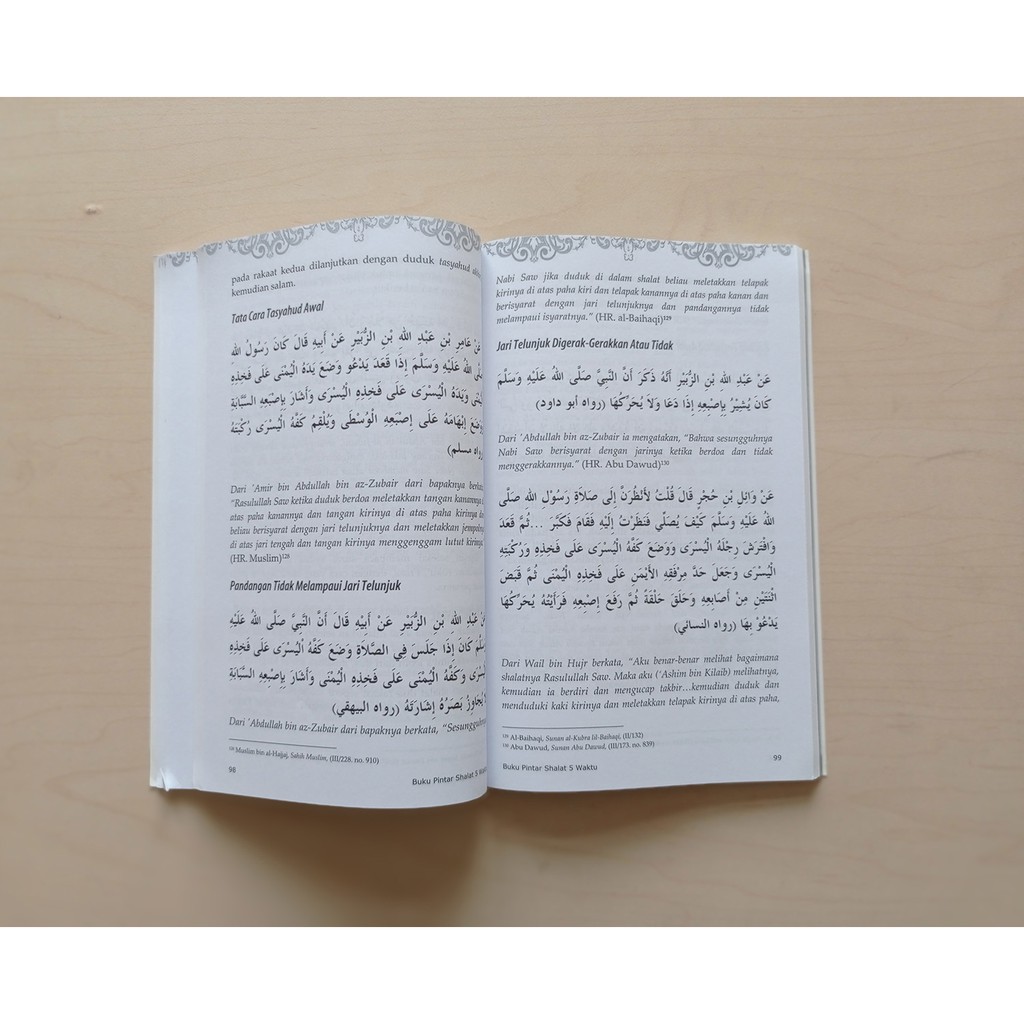 pada rakaat kedua dilanjutkan dengan duduk tasyahud
kemudian salam.
Tata Cara Tasyahud Awal
عَنْ عَامِرِ بْنِ عَبْدِ اللهِ بْنِ الزُّبَيْرِ عَنْ أَبِيهِ قَالَ كَانَ رَسُولُ اللهِ
اللهُ عَلَيْهِ وَسَلَّمَ إِذَا قَعَدَ يَدْعُو وَضَعَ يَدَهُ الْيُمْنَى عَلَى فَخِذِهِ
وَيَدَهُ الْيُسْرَى عَلَى فَخِذِهِ الْيُسْرَى وَأَشَارَ بِإِصْبَعِهِ السَّبَّابَةِ
إِبْهَامَهُ عَلَى إِصْبَعِهِ الْوُسْطَى وَيُلْقِمُ كَفَّهُ الْيُسْرَى رُكْبَتَهُ
(رواه مسلم)
Dari 'Amir bin Abdullah bin az-Zubair dari bapaknya
"Rasulullah Saw ketika duduk berdoa meletakkan tangan kanannya
atas paha kanannya dan tangan kirinya di atas paha kirinya
beliau berisyarat dengan jari telunjuknya dan meletakkan
di atas jari tengah dan tangan kirinya menggenggam lutut kirinya
(HR. Muslim)128
Pandangan Tidak Melampaui Jari Telunjuk
عَبْدِ اللهِ بْنِ الزُّبَيْرِ عَنْ أَبِيْهِ قَالَ أَنَّ النَّبِيَّ صَلَّى اللهُ عَلَيْهِ
كَانَ إِذَا جَلَسَ فِي الصَّلَاةِ وَضَعَ كَفَّهُ الْيُسْرَى عَلَى فَخِذِهِ
وَكَفَّهُ الْيُمْنَى عَلَى فَخِذِهِ الْيُمْنَى وَأَشَارَ بِإِصْبَعِهِ السَّبَّابَةِ
يُجَاوِزُ بَصَرُهُ إِشَارَتَهُ (رواه البيهقي)
Dari 'Abdullah bin az-Zubair dari bapaknya berkata,
128 Muslim bin al-Hajjaj, Sahih Muslim, (III/228. no. 910)
98
Buku Pintar Shalat 5 Waktu
Nabi Saw jika duduk di dalam shalat beliau meletakkan telapak
kirinya di atas paha kiri dan telapak kanannya di atas paha kanan dan
berisyarat dengan jari telunjuknya dan pandangannya tidak
melampaui isyaratnya." (HR. al-Baihaqi)129
Jari Telunjuk Digerak-Gerakkan Atau Tidak
عَنْ عَبْدِ اللهِ بْنِ الزُّبَيْرِ أَنَّهُ ذَكَرَ أَنَّ النَّبِيَّ صَلَّى اللهُ عَلَيْهِ وَسَلَّمَ
كَانَ يُشِيْرُ بِإِصْبَعِهِ إِذَا دَعَا وَلَا يُحَرِّكُهَا (رواه أبو داود)
Dari 'Abdullah bin az-Zubair ia mengatakan, "Bahwa sesungguhnya
Nabi Saw berisyarat dengan jarinya ketika berdoa dan tidak
menggerakkannya." (HR. Abu Dawud)130
عَنْ وَائِلِ بْنِ حُجْرٍ قَالَ قُلْتُ لَأَنْظُرَنَّ إِلَى صَلَاةِ رَسُوْلِ اللهِ صَلَّى
اللهُ عَلَيْهِ وَسَلَّمَ كَيْفَ يُصَلِّي فَنَظَرْتُ إِلَيْهِ فَقَامَ فَكَبَّرَ ... ثُمَّ قَعَدَ
وَافْتَرَشَ رِجْلَهُ الْيُسْرَى وَوَضَعَ كَفَّهُ الْيُسْرَى عَلَى فَخِذِهِ وَرُكْبَتِهِ
الْيُسْرَى وَجَعَلَ حَدَّ مِرْفَقِهِ الْأَيْمَنِ عَلَى فَخِذِهِ الْيُمْنَى ثُمَّ قَبَضَ
اثْنَتَيْنِ مِنْ أَصَابِعِهِ وَحَلَّقَ حَلْقَةً ثُمَّ رَفَعَ إِصْبَعَهُ فَرَأَيْتُهُ يُحَرِّكُهَا
يَدْعُوْ بِهَا (رواه النسائي)
Dari Wail bin Hujr berkata, "Aku benar-benar melihat bagaimana
shalatnya Rasulullah Saw. Maka aku ('Ashim bin Kilaib) melihatnya,
kemudian ia berdiri dan mengucap takbir...kemudian duduk dan
menduduki kaki kirinya dan meletakkan telapak kirinya di atas paha,
129 Al-Baihaqi, Sunan al-Kubra lil-Baihaqi, (II/132)
130 Abu Dawud, Sunan Abu Dawud, (III/173. no. 839)
99
Buku Pintar Shalat 5 Waktu